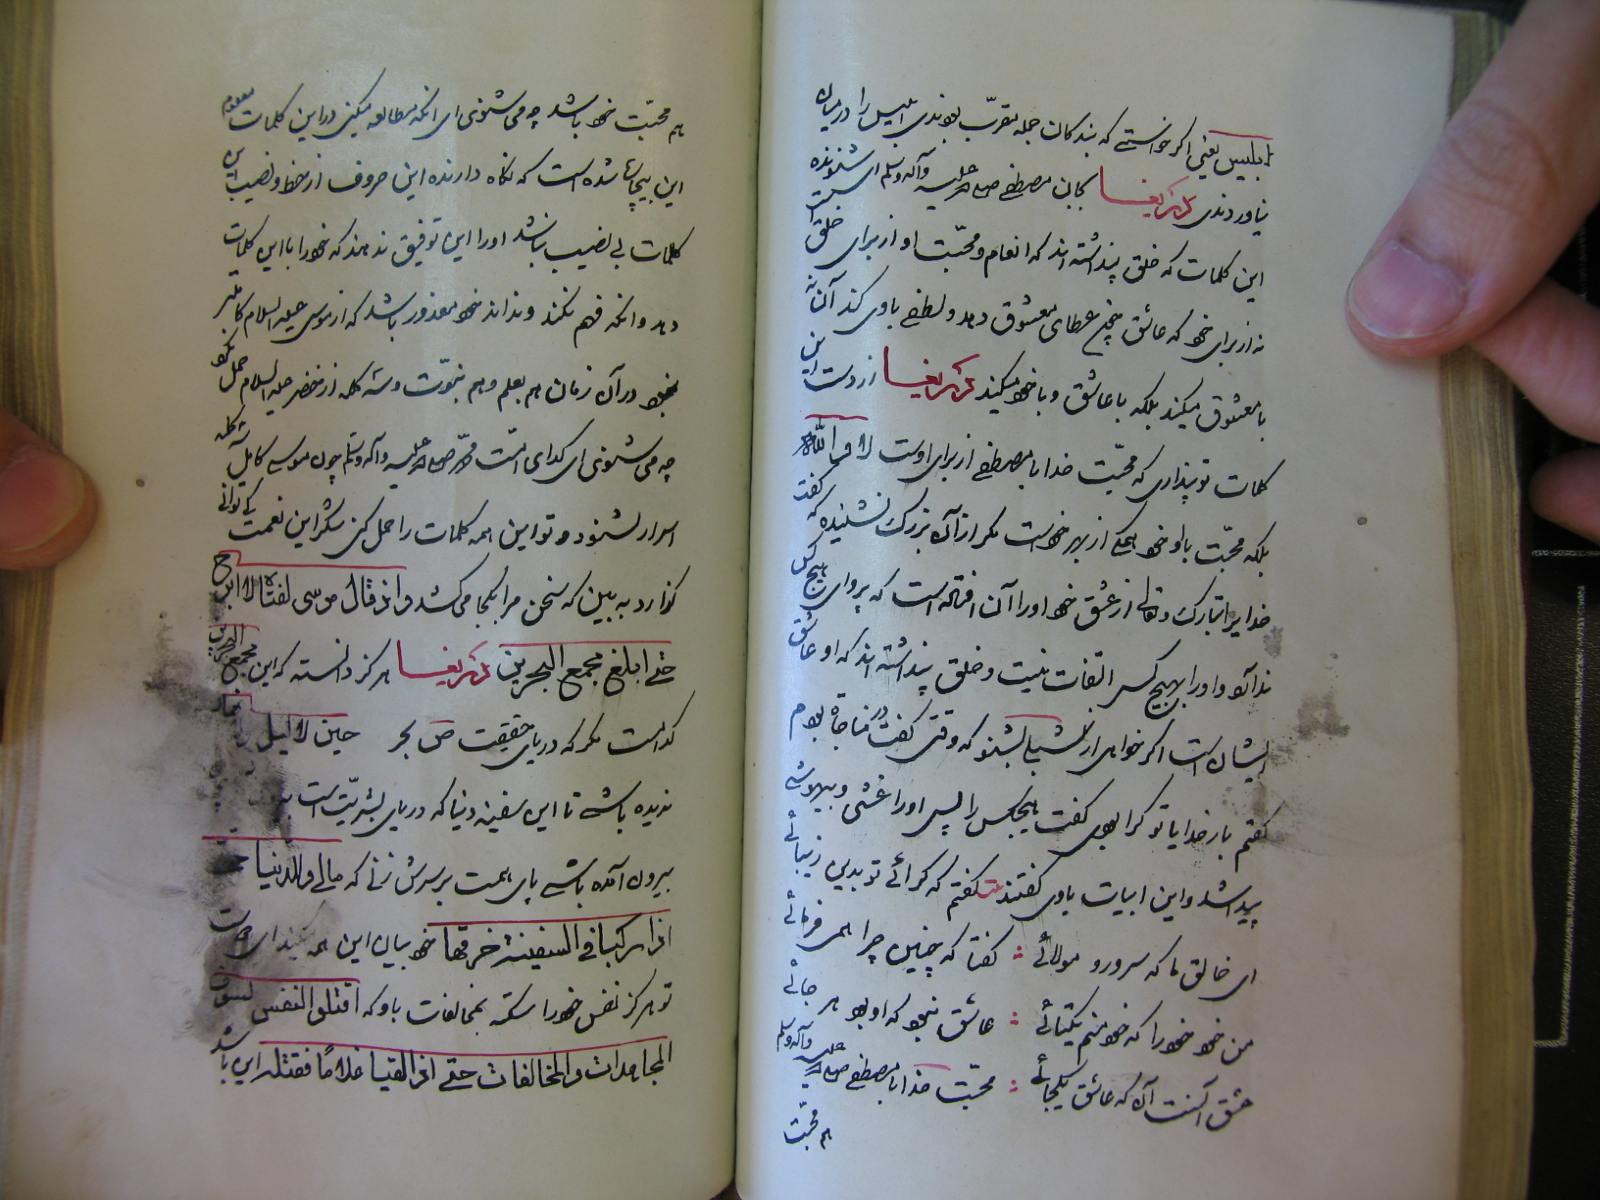 ابلیس یعنی اگر خواستی که بندگان جمله مقرب بودندی ابلیس را در میان
نیاوردندی ای عزیز بجان مصطفی صلی الله علیه وآله وسلم ای شنونده
این کلمات که خلق پنداشته اند که انعام و محبت او از برای خلق است
نه از برای خود که عاشق چون عطای معشوق دهد و لطفی باوی کند آن نه
با معشوق میکند بلکه با عاشق و با خود میکند از دست این
کلمات تو پنداری که محبت خدا با مصطفی از برای اوست لا والله
بلکه محبت با او خود از بهر خود است مگر از آن بزرگ نشنیده که گفت
خدایرا تبارک وتعالی از عشق خود او را آن افتاده است که پروای هیچ کس
ندارد و او را بهیچ کس التفات نیست و خلق پنداشته اند که او عاشق
ایشان است اگر خواهی از شبلی بشنو که وقتی گفت در مناجاة بودم
گفتم بار خدایا تو کرا بودی گفت هیچکس را پس او را غشی و بیهوشی
پیدا شد و این ابیات باوی گفتند گفتم که کرائی تو بدین زیبائی
ای خالق ما که سرور و مولائی گفتا که چنین چرا همی فرمائی
من خود خود را که خود منم یکتائی عاشق نبود که او بود هر جائی
عشق آنست آن که عاشق یکجائی محبت خدا با مصطفی صلی الله علیه وآله وسلم
هم محبت
هم محبت خود باشد چه می شنوی ای آنکه مطالعه میکنی در این کلمات معلوم
این بیچاره شده است که نگاه دارنده این حروف از حظ و نصیب این
کلمات بی نصیب باشد او را این توفیق ندهند که خود را با این کلمات
دهد وآنکه فهم نکند و نداند خود معذور باشد که از موسی علیه السلام کاملتر
نبود در آن زمان هم بعلم و هم نبوت وسه کلمه از خضر علیه السلام حمل نکرد
چه می شنوی ای گدای امت محمد صلی الله علیه وآله وسلم چون موسی کامل سه کلمه
اسرار نشنود و تو این همه کلمات را حمل کن شکر این نعمت کی توانی
گزارد به بین که سخن مرا کجا می کشد واذ قال موسی لفتاه لا ابرح
حتی ابلغ مجمع البحرین هرگز دانسته که این مجمع البحرین
کدامست مگر که دریای حقیقت ص بحر حین لا لیل
ندیده باشی تا این سفینه دنیا که دریای بشریت است
بیرون آمده باشی پای همت بر سرش زنی که مالی وللدنیا
اذا رکبا فی السفینة خرقها خود بیان این همه میکند ای دوست
تو هرگز نفس خود را کشته بمخالفات باو که اقتلوا النفس بسیوف
المجاهدات والمخالفات حتی اذا لقیا غلاما فقتله این باشد